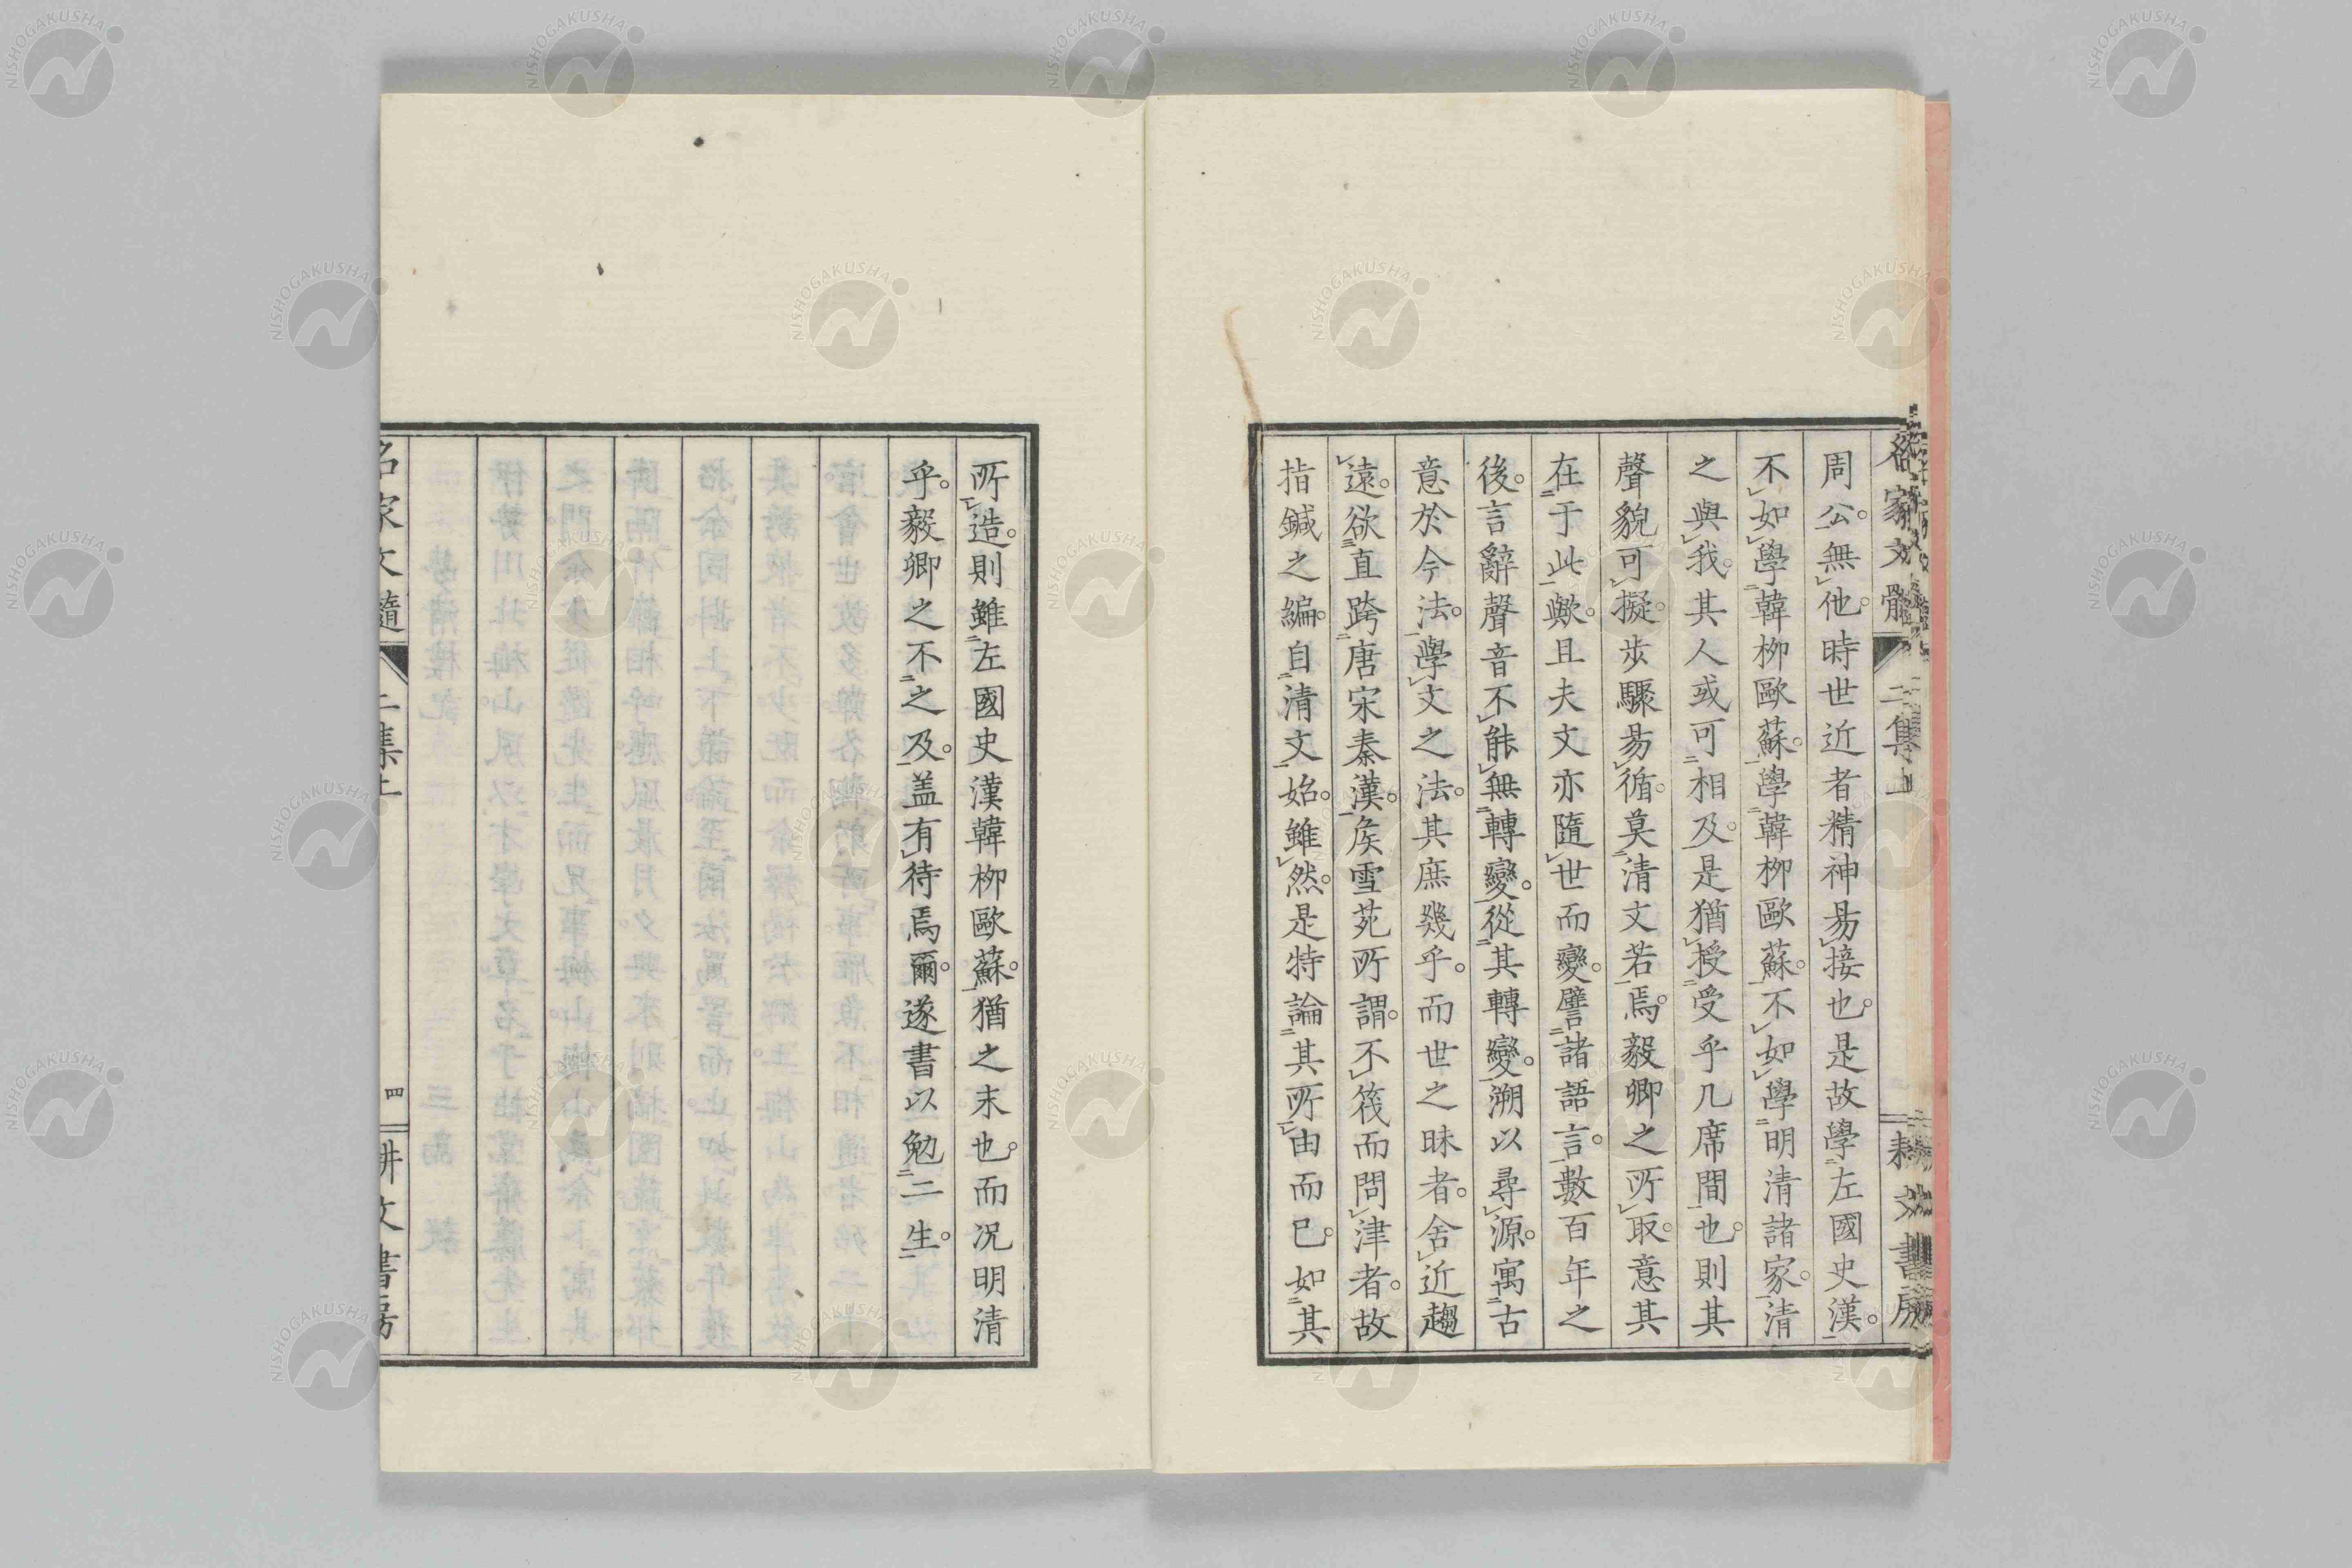 名家文髓 二集上 耕文書房
周公。無他。時世近者精神易接也。是故學左國史漢。
不如學韓柳歐蘇。學韓柳歐蘇。不如學明清諸家。清
之與我。其人或可相及。是猶授受乎几席間也。則其
聲貌可擬。步驟易循。莫清文若焉。毅卿之所取。意其
在于此歟。且夫文亦隨世而變。譬諸語言。數百年之
後。言辭聲音不能無轉變。從其轉變。溯以尋源。寓古
意於今法。學文之法。其庶幾乎。而世之昧者。舍近趨
遠。欲直跨唐宋秦漢。侯雪苑所謂。不筏而問津者。故
指鍼之編。自清文始。雖然。是特論其所由而已。如其
所造。則雖左國史漢韓柳歐蘇。猶之末也。而況明清
乎。毅卿之不之及。盖有待焉爾。遂書以勉二生。
名家文髓 二集上 四 耕文書房
NISHOGAKUSHA